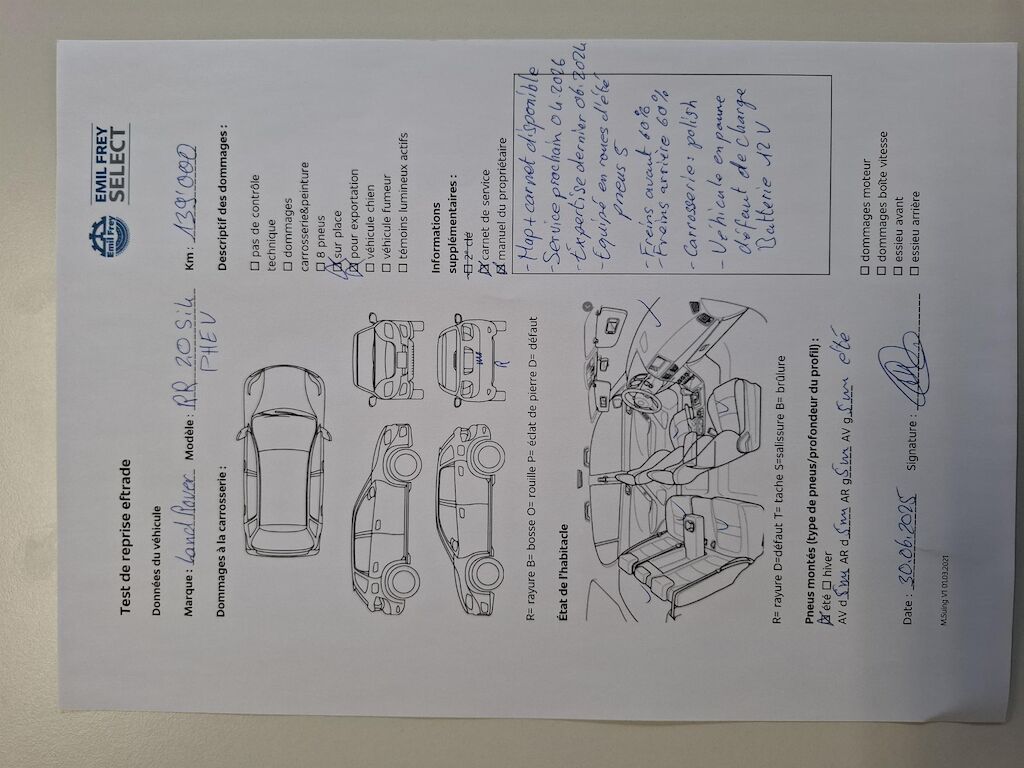 Emil Frey
EMIL FREY
SELECT
Test de reprise eftrade
Données du véhicule
Marque : Land Rover Modèle : RR 2.0 Si4 Km : 139'000
PHEV
Dommages à la carrosserie :
R
Descriptif des dommages :
☐ pas de contrôle
technique
☐ dommages
carrosserie&peinture
☐ 8 pneus
☒ sur place
☒ pour exportation
☐ véhicule chien
☐ véhicule fumeur
☐ témoins lumineux actifs
R= rayure B= bosse O= rouille P= éclat de pierre D= défaut
Informations
supplémentaires :
☐ 2e clé
☒ carnet de service
☒ manuel du propriétaire
- Map + carnet disponible
- Service prochain 04.2026
- Expertise dernier 06.2024
- Equipé en roues d'été
pneus 5
- Freins avant 60%
Freins arrière 60%
- Carrosserie : polish
- Véhicule en panne
défaut de charge
Batterie 12 V
État de l'habitacle
R= rayure D=défaut T= tache S=salissure B= brûlure
Pneus montés (type de pneus/profondeur du profil) :
☒ été ☐ hiver
AV d 5mm AR d 5mm AR g 5mm AV g 5mm été
☐ dommages moteur
☐ dommages boîte vitesse
☐ essieu avant
☐ essieu arrière
Date : 30.06.2025 Signature :
M.Suing V1 01.03.2021